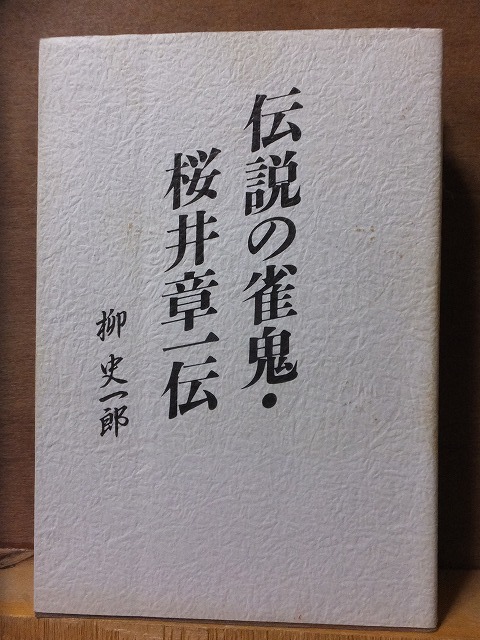 伝説の雀鬼・
桜井章一伝
柳史一郎